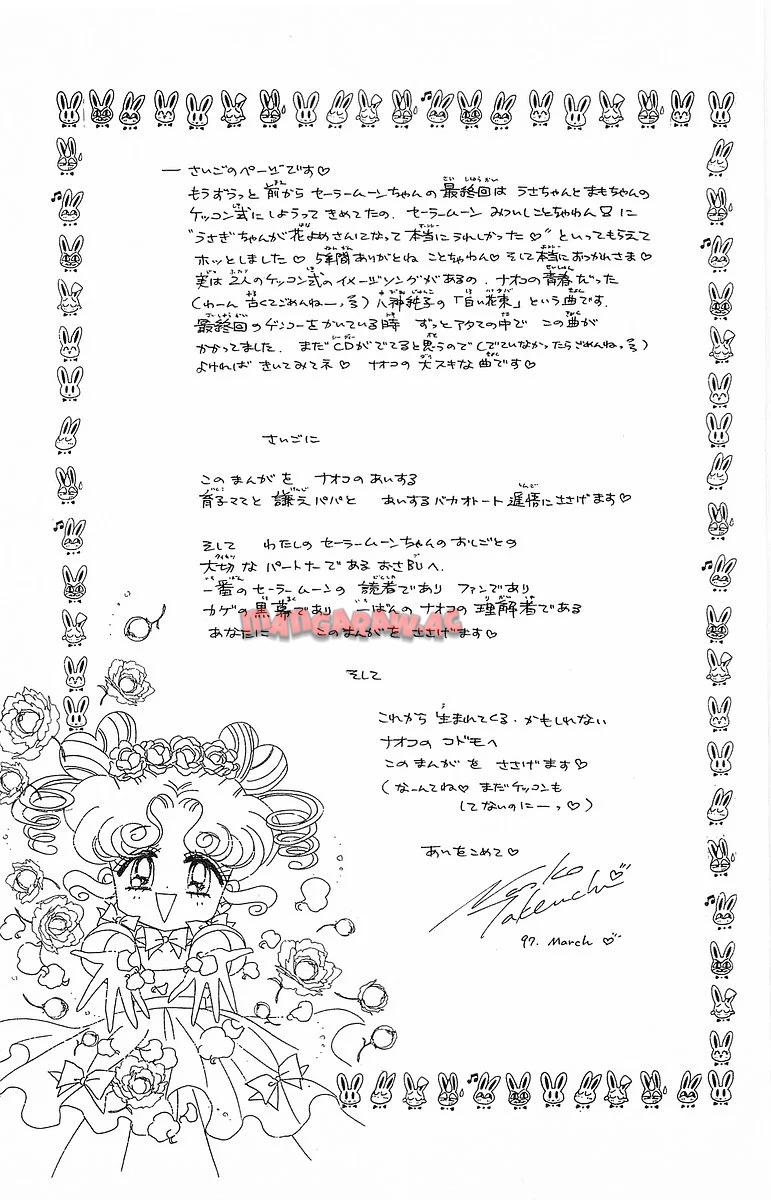 — さいごのページです♡
もうずうっと 前から セーラームーンちゃんの 最終回は うさちゃんと まもちゃんの
ケッコン式に しようって きめてたの. セーラームーン みついしことちゃわん に
"うさぎちゃんが 花よめさんになって 本当に うれしかった♡" といってもらえて
ホッとしました♡ 5年間 ありがとね ことちゃわん♡ そして 本当に おつかれさま♡
実は 2人のケッコン式の イメージソングがあるの. ナオコの 青春だった
(わーん 古くてごめんねー,) 八神純子の 「白い花束」 という曲です.
最終回の ゲンコーをかいている時 ずっと アタマの中で この曲が
かかってました. まだ CDが でてると 思うので (でていなかったら ごめんね,)
よければ きいてみてネ♡ ナオコの 大スキな 曲です♡
さいごに
このまんがを ナオコの あいする
育子ママと 謙えパパと あいするバカオトート 遅悟に ささげます♡
そして わたしの セーラームーンちゃんの おしごとの
大切な パートナーである おさBUへ.
一番の セーラームーンの 読者であり ファンであり
カゲの 黒幕であり いちばんの ナオコの 理解者である
あなたに このまんがを ささげます♡
MANGARAW.AC
そして
これから 生まれてくる・かもしれない
ナオコの コドモへ
このまんがを ささげます♡
(なーんてね♡ まだケッコンも
してないのにーっ♡)
あいをこめて♡
Naoko Takeuchi
97. March